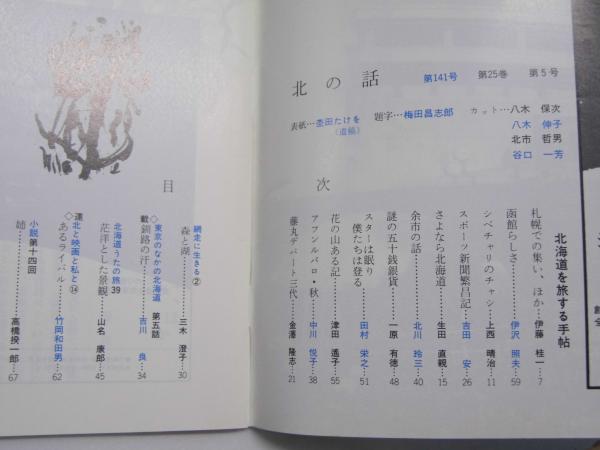 北の話 第141号 第25巻 第5号
表紙…杢田たけを
（道稿）
題字…梅田昌志郎
カット…八木 保次
八木 伸子
北市 哲男
谷口 一芳
目次
北海道を旅する手帖
札幌での集い、ほか…伊藤 桂一…7
函館らしさ…伊沢 照夫…59
シベチャリのチャシ…上西 晴治…11
スポーツ新聞繁昌記…吉田 安…26
さよなら北海道…生田 直親…15
余市の話…北川 玲三…40
謎の五十銭銀貨…一原 有徳…48
スターは眠り
僕たちは登る…田村 栄之…51
花の山ある記…津田 遙子…55
アフンルパロ・秋…中川 悦子…38
藤丸デパート三代…金澤 隆志…21
網走に生きる②
森と湖…三木 澄子…30
◇東京のなかの北海道 第五話
釧路の汗…吉川 良…34
北海道うたの旅39
茫洋とした景観…山名 康郎…45
連載
◇北と映画と私と⑭
あるライバル…竹岡和田男…62
小説第十四回
姉…高橋揆一郎…67